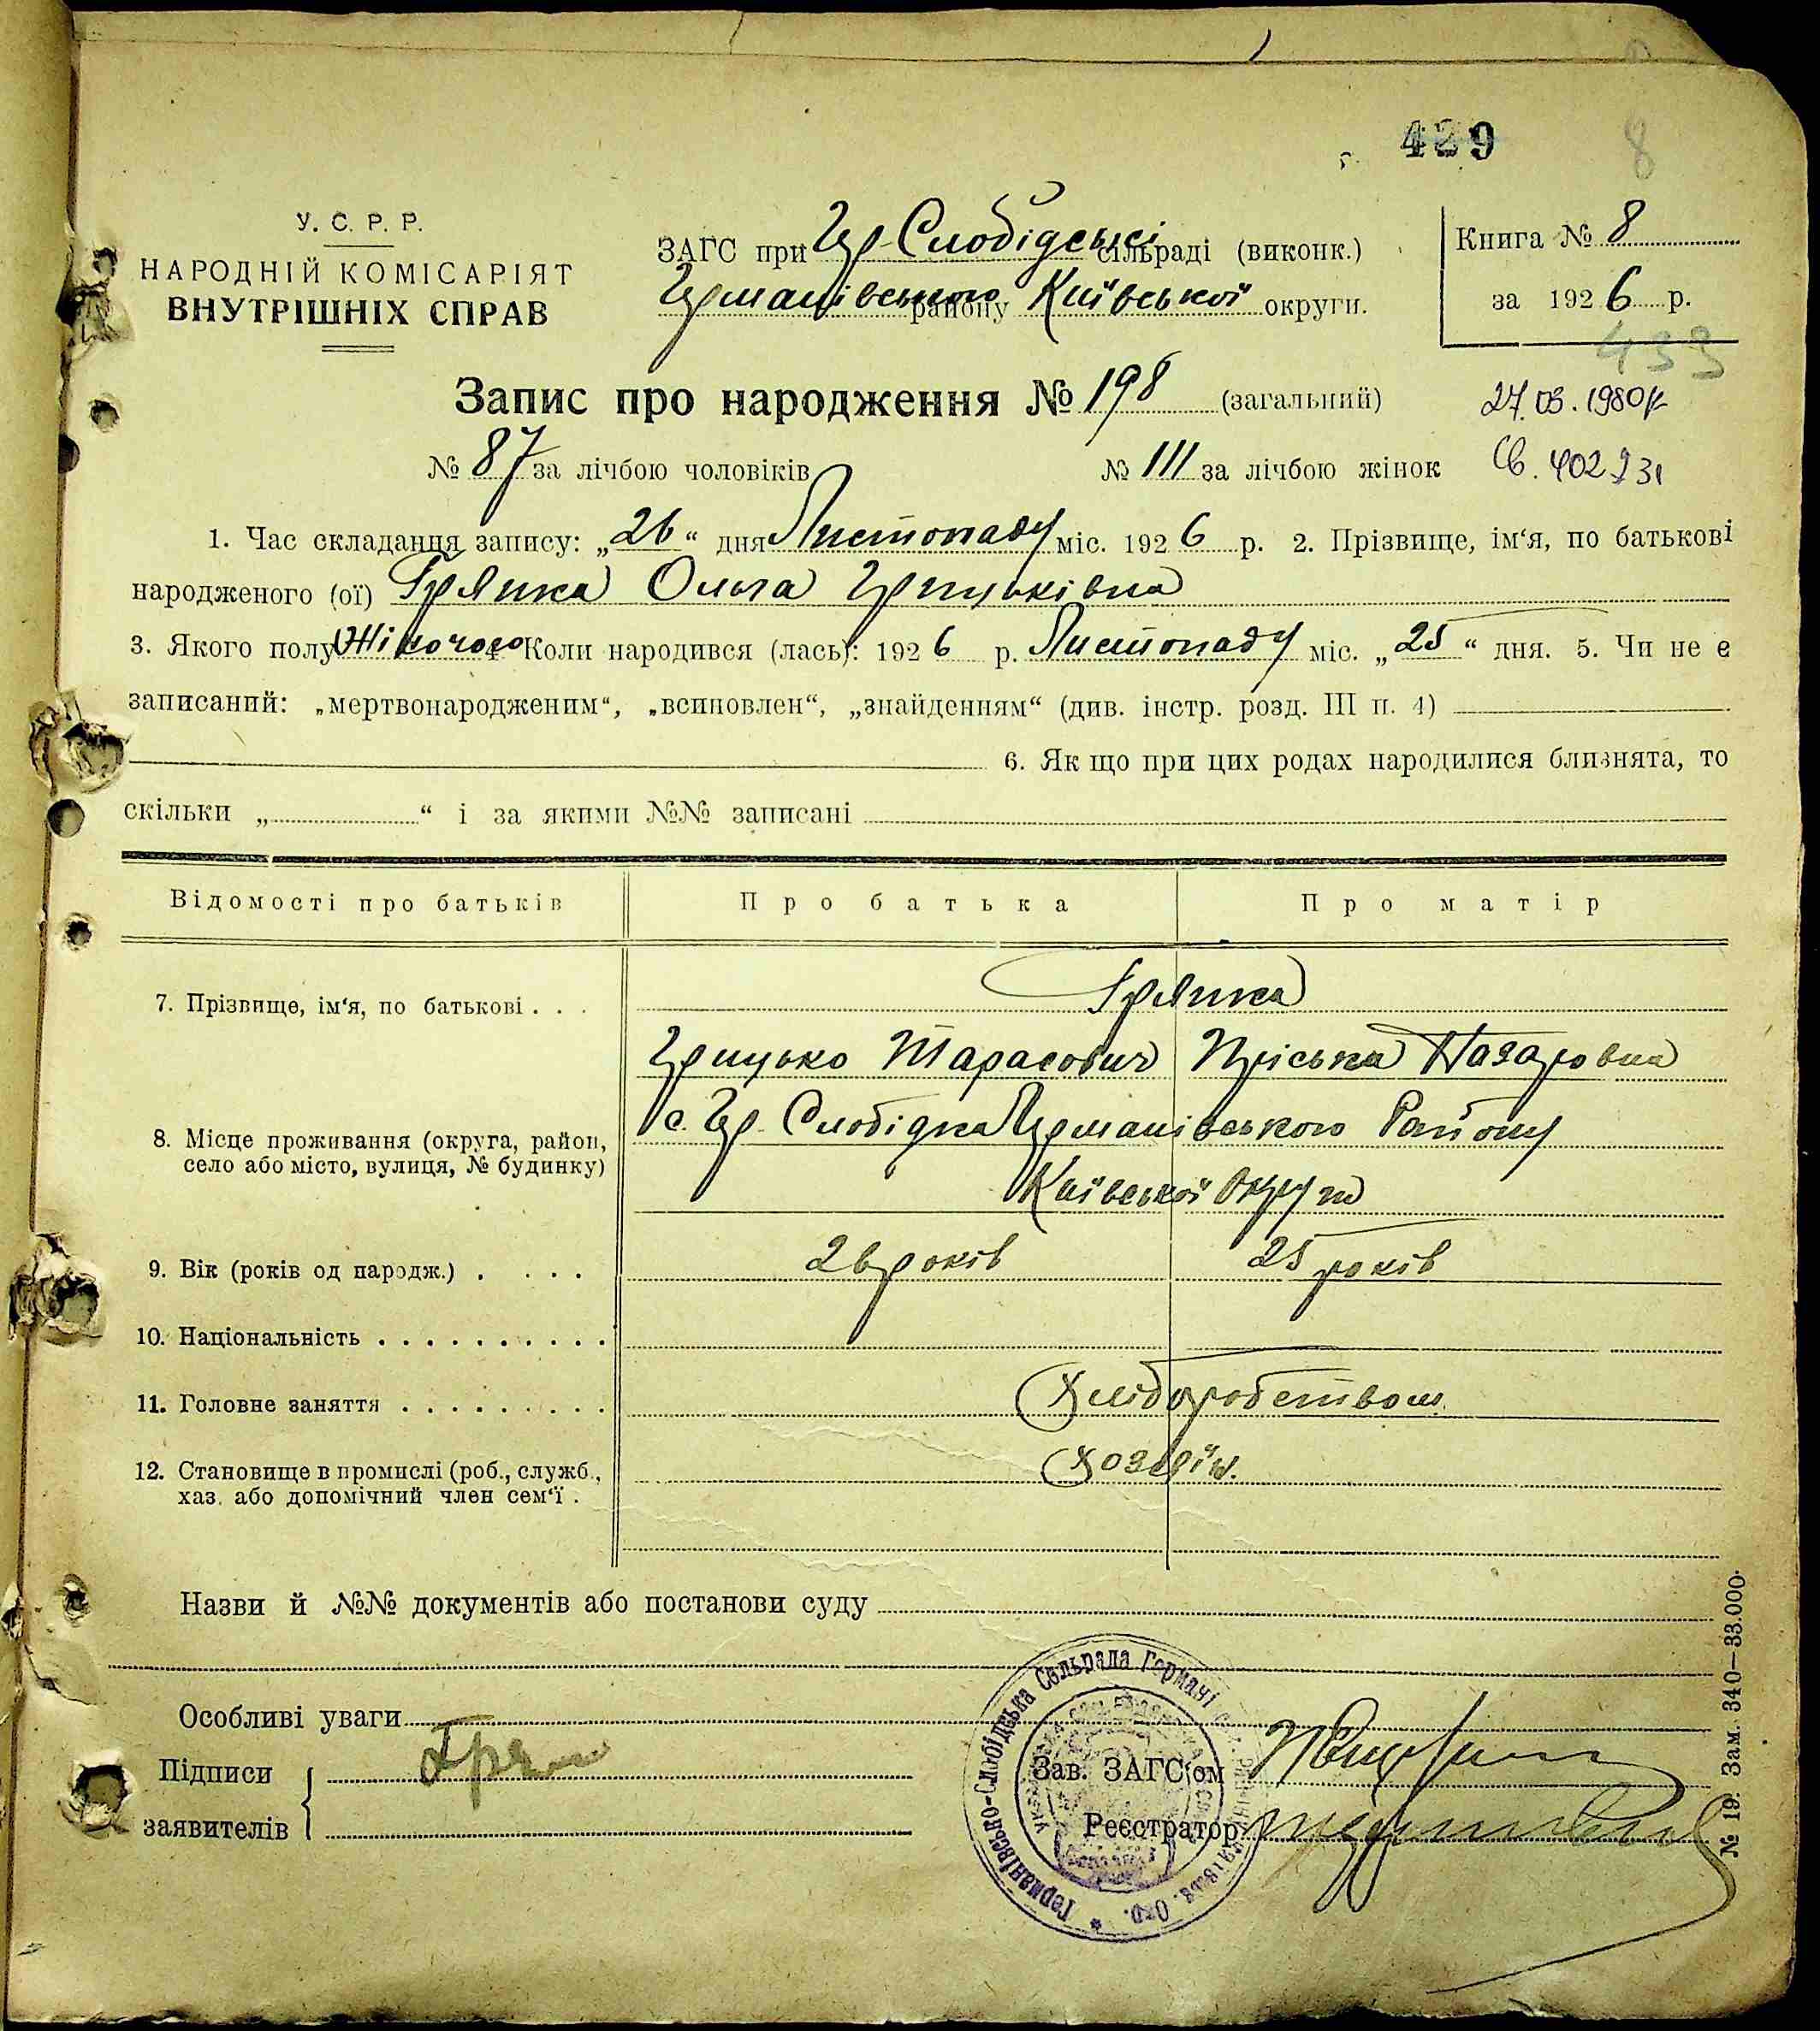 429
8
У. С. Р. Р.
НАРОДНІЙ КОМІСАРІЯТ
ВНУТРІШНІХ СПРАВ
ЗАГС при Гер-Слобідські сільраді (виконк.)
Германівського району Київської округи.
Книга № 8
за 1926 р.
433
Запис про народження № 198 (загальний)
27.03.1980р
№ 87 за лічбою чоловіків № 111 за лічбою жінок
1. Час складання запису: „26“ дня Листопаду міс. 1926 р. 2. Прізвище, ім‘я, по батькові
народженого (ої) Грянка Ольга Грицьківна
3. Якого полу Жіночого 4. Коли народився (лась): 1926 р. Листопаду міс. „25“ дня. 5. Чи не є
записаний: „мертвонародженим“, „всиновлен“, „знайденням“ (див. інстр. розд. III п. 4)
6. Як що при цих родах народилися близнята, то
скільки „ “ і за якими №№ записані
Відомості про батьків Про батька Про матір
7. Прізвище, ім‘я, по батькові . . . Грянка
Грицько Тарасович Пріська Назаровна
с. Гер-Слобідка Германівського Району
8. Місце проживання (округа, район,
село або місто, вулиця, № будинку)
Київської Округи
9. Вік (років од народж.) . . . . . 26 років 25 років
10. Національність . . . . . . . . . .
11. Головне заняття . . . . . . . . . Хліборобством
12. Становище в промислі (роб., служб.,
хаз. або допомічний член сем‘ї .
Хозяїн.
Назви й №№ документів або постанови суду
Особливі уваги
Підписи
заявителів
Зав. ЗАГС‘ом
Реєстратор
Германівсько-Слобідська Сельрада Германі
№ 19. Зам. 340—33.000.